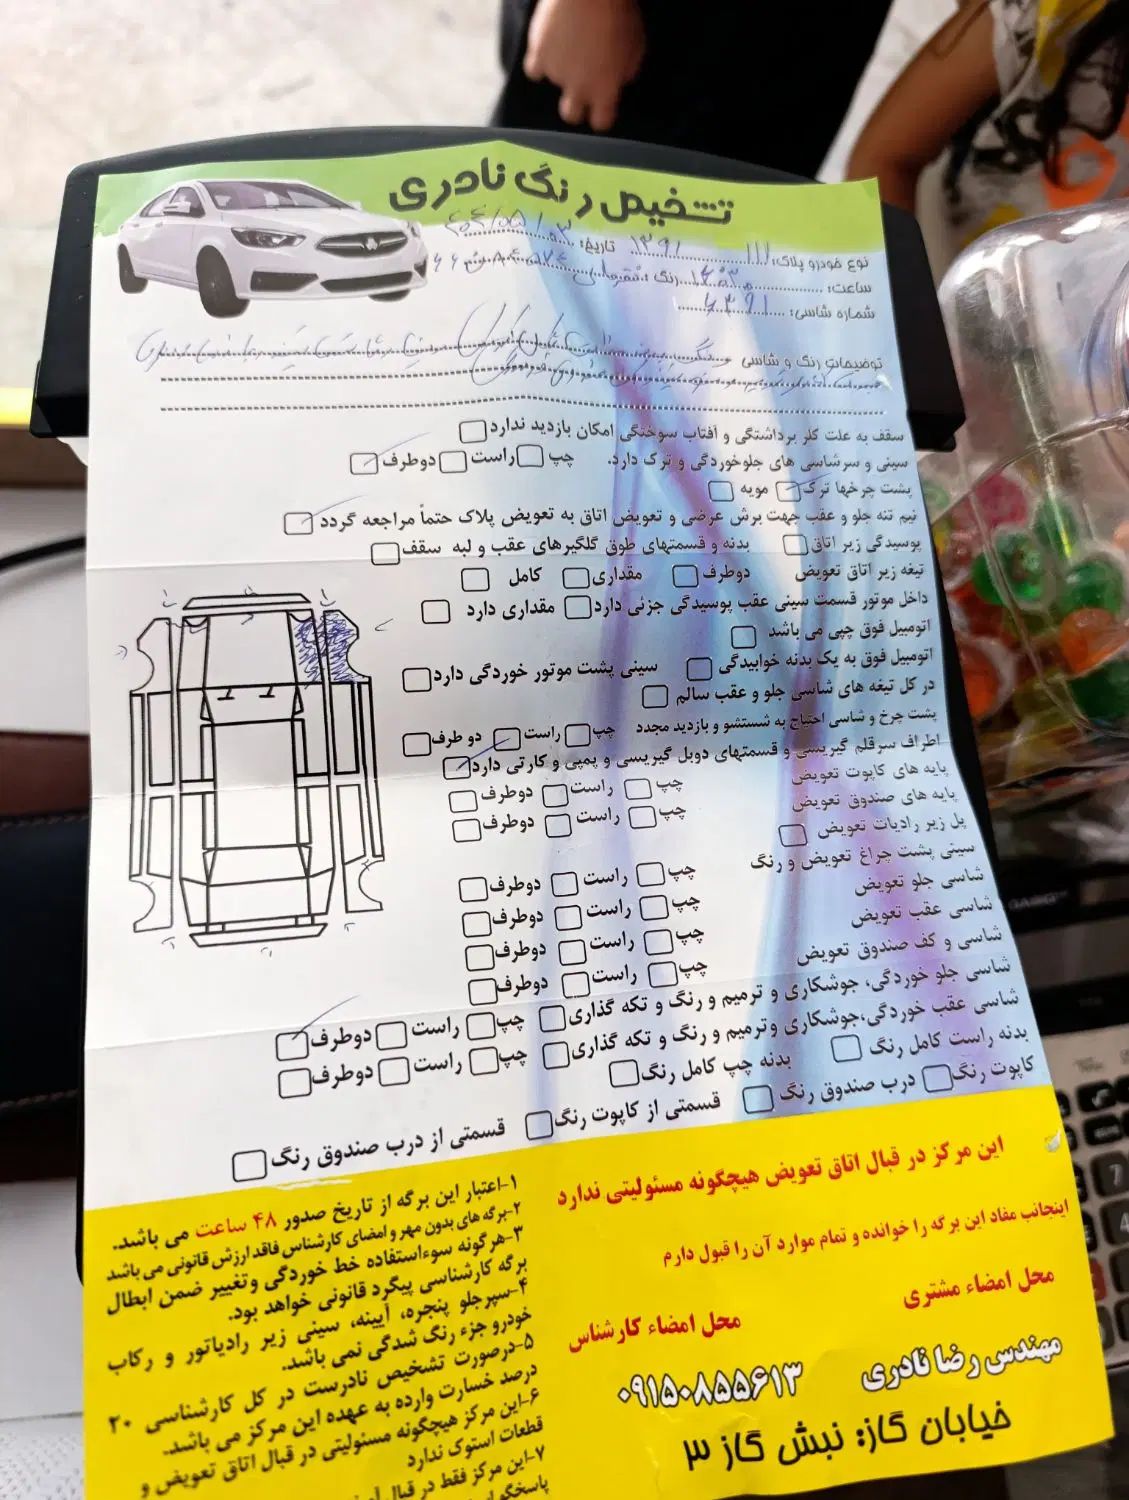 تشخیص رنگ نادری
نوع خودرو پلاک: ۱۱۱ ۱۳۹۱ تاریخ:
ساعت: رنگ:
شماره شاسی: ۶۳۹۱
توضیحات رنگ و شاسی
سقف به علت کلر برداشتگی و آفتاب سوختگی امکان بازدید ندارد
سینی و سرشاسی های جلوخوردگی و ترک دارد. چپ راست دوطرف
پشت چرخها ترک مویه
نیم تنه جلو و عقب جهت برش عرضی و تعویض اتاق به تعویض پلاک حتماً مراجعه گردد
پوسیدگی زیر اتاق بدنه و قسمتهای طوق گلگیرهای عقب و لبه سقف
تیغه زیر اتاق تعویض دوطرف مقداری کامل
داخل موتور قسمت سینی عقب پوسیدگی جزئی دارد مقداری دارد
اتومبیل فوق چپی می باشد
اتومبیل فوق به یک بدنه خوابیدگی سینی پشت موتور خوردگی دارد
در کل تیغه های شاسی جلو و عقب سالم
پشت چرخ و شاسی احتیاج به شستشو و بازدید مجدد چپ راست دو طرف
اطراف سرقلم گیریسی و قسمتهای دوبل گیریسی و پمپی و کارتی دارد
پایه های کاپوت تعویض چپ راست دوطرف
پایه های صندوق تعویض چپ راست دوطرف
پل زیر رادیات تعویض
سینی پشت چراغ تعویض و رنگ چپ راست دوطرف
شاسی جلو تعویض چپ راست دوطرف
شاسی عقب تعویض چپ راست دوطرف
شاسی و کف صندوق تعویض چپ راست دوطرف
شاسی جلو خوردگی، جوشکاری و ترمیم و رنگ و تکه گذاری چپ راست دوطرف
شاسی عقب خوردگی،جوشکاری وترمیم و رنگ و تکه گذاری چپ راست دوطرف
بدنه راست کامل رنگ بدنه چپ کامل رنگ
کاپوت رنگ درب صندوق رنگ قسمتی از کاپوت رنگ قسمتی از درب صندوق رنگ
این مرکز در قبال اتاق تعویض هیچگونه مسئولیتی ندارد
اینجانب مفاد این برگه را خوانده و تمام موارد آن را قبول دارم
محل امضاء مشتری
محل امضاء کارشناس
مهندس رضا نادری
۰۹۱۵۰۸۵۵۶۱۳
خیابان گاز: نبش گاز ۳
۱-اعتبار این برگه از تاریخ صدور ۴۸ ساعت می باشد.
۲-برگه های بدون مهر و امضای کارشناس فاقد ارزش قانونی می باشد
۳-هرگونه سوءاستفاده خط خوردگی وتغییر ضمن ابطال
برگه کارشناسی پیگرد قانونی خواهد بود.
۴-سپرجلو پنجره، آیینه، سینی زیر رادیاتور و رکاب
خودرو جزء رنگ شدگی نمی باشد.
۵-درصورت تشخیص نادرست در کل کارشناسی ۲۰
درصد خسارت وارده به عهده این مرکز می باشد.
۶-این مرکز هیچگونه مسئولیتی در قبال اتاق تعویض و
قطعات استوک ندارد
۷-این مرکز فقط در قبال